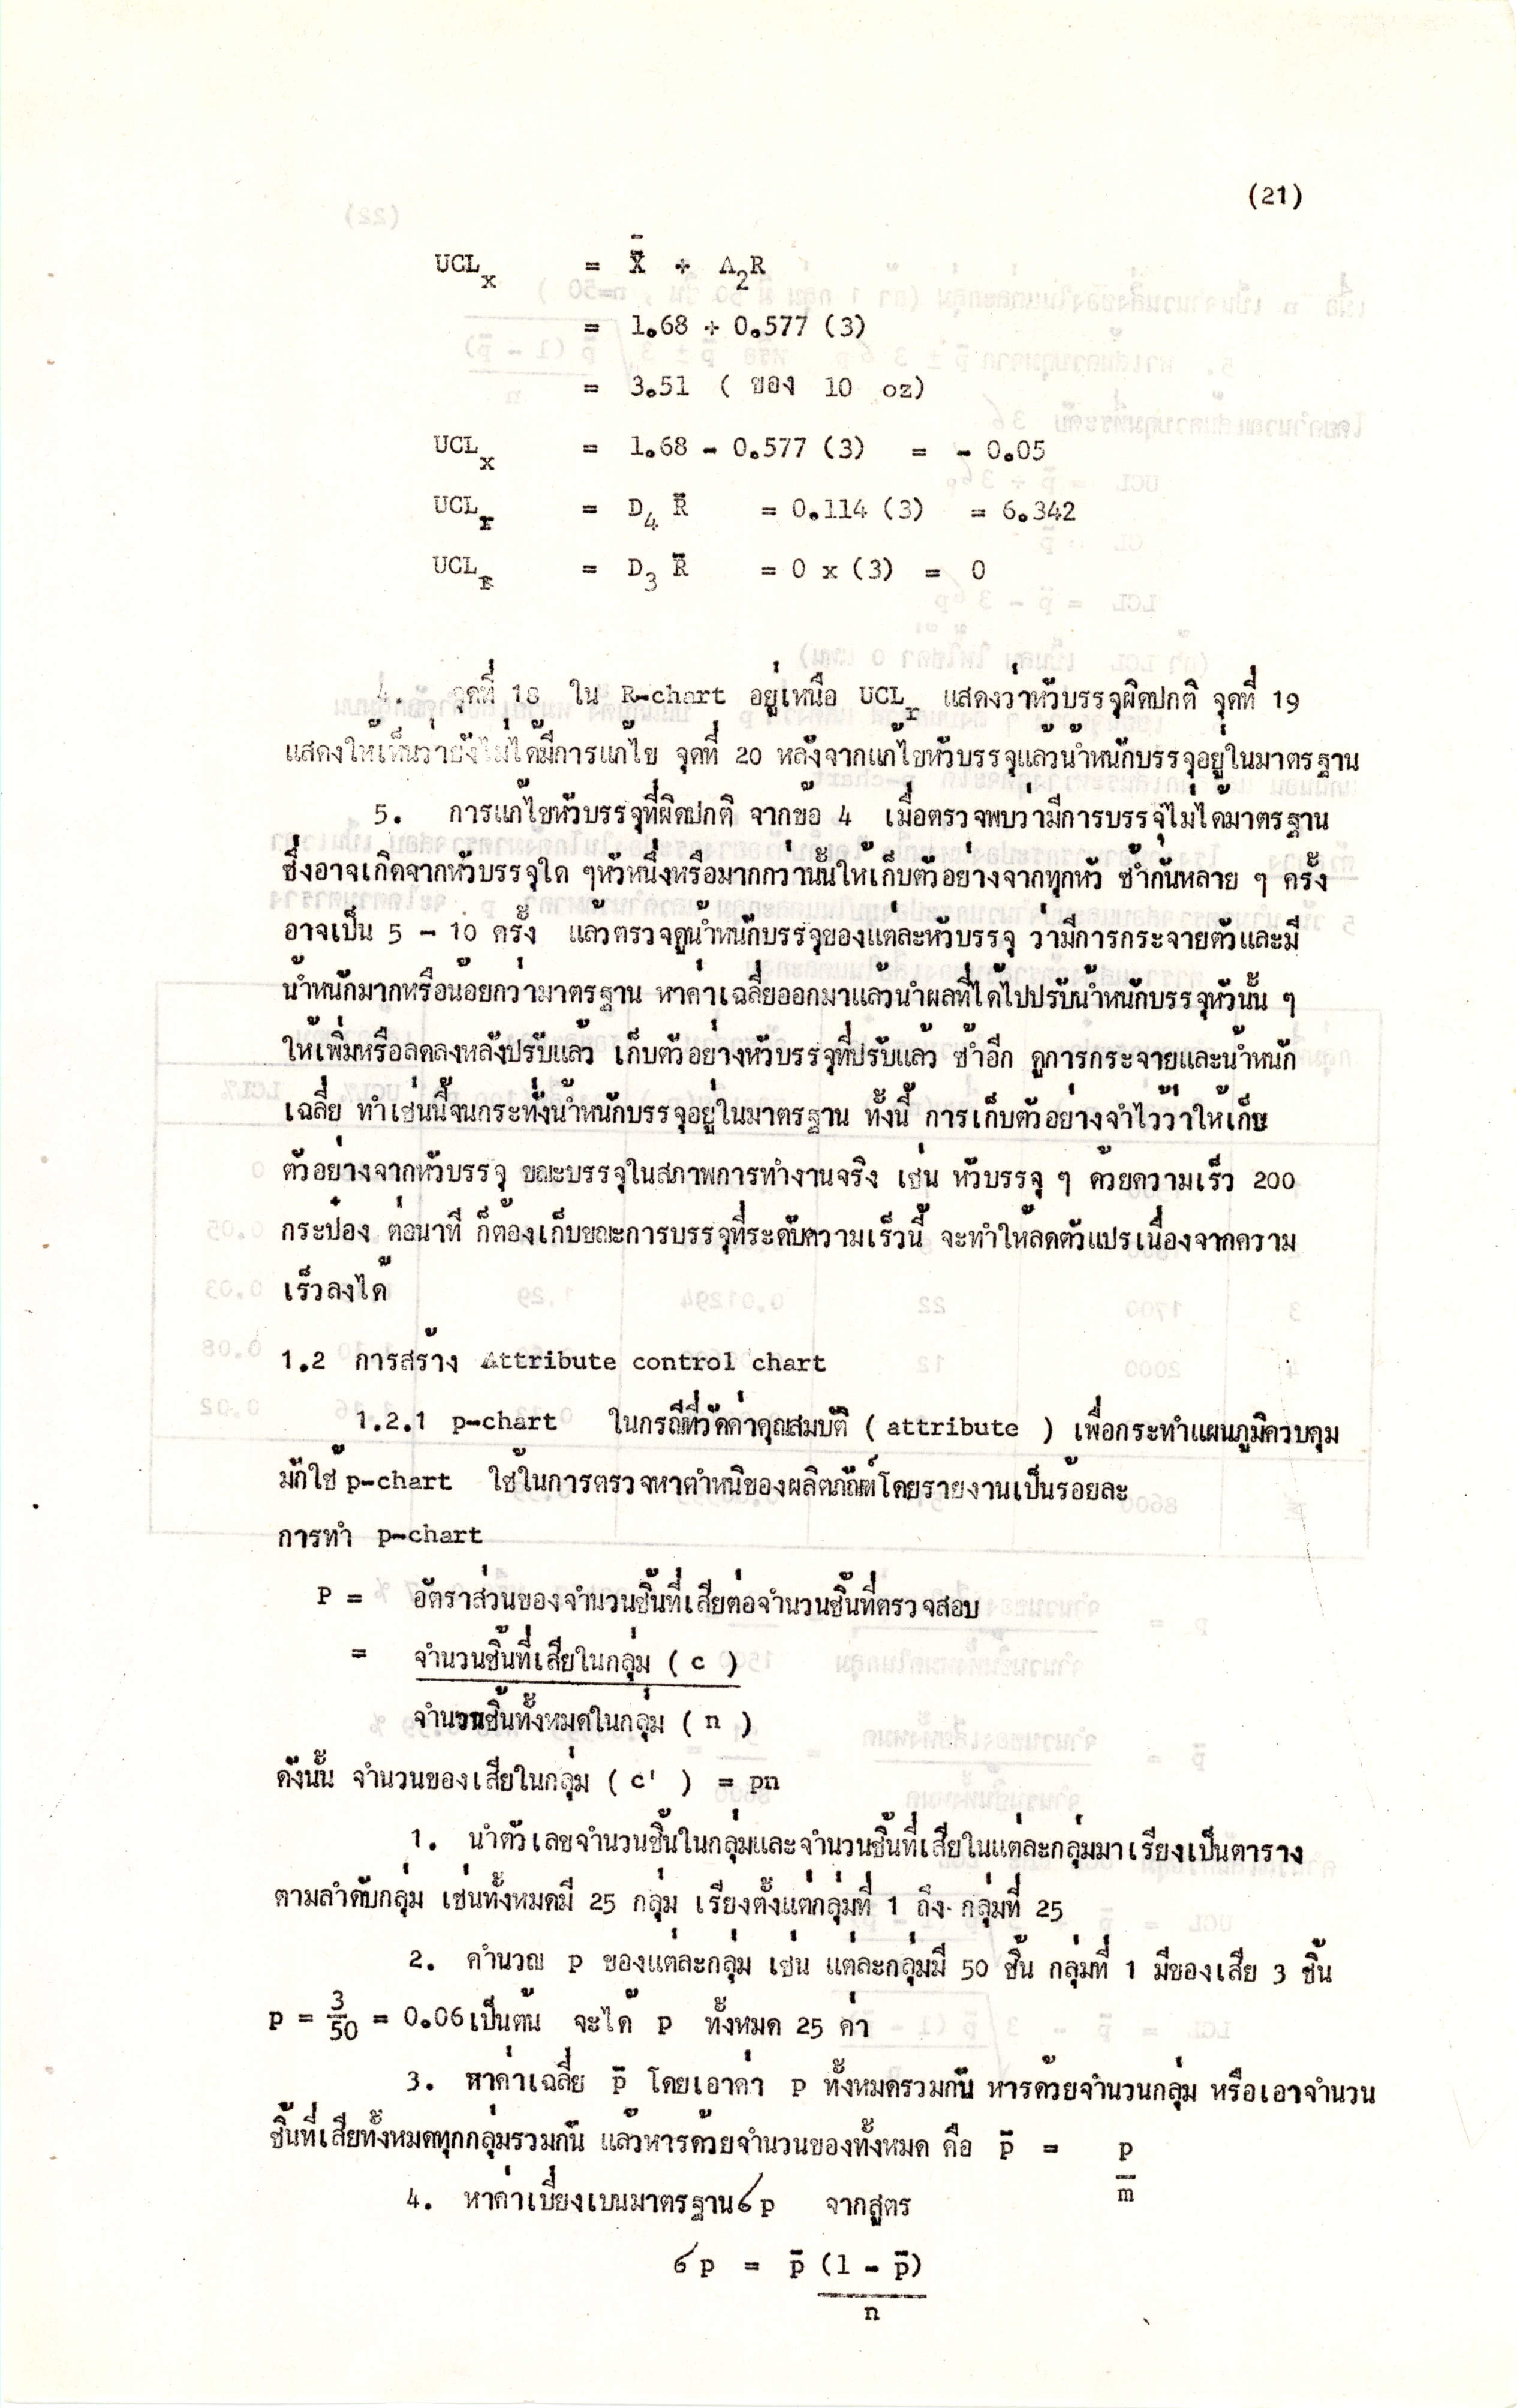 (21)
UCLx = X̿ + A2R
= 1.68 + 0.577 (3)
= 3.51 ( ของ 10 oz)
UCLx = 1.68 - 0.577 (3) = - 0.05
UCLr = D4 R̄ = 0.114 (3) = 6.342
UCLr = D3 R̄ = 0 x (3) = 0
4. จุดที่ 18 ใน R-chart อยู่เหนือ UCLr แสดงว่าหัวบรรจุผิดปกติ จุดที่ 19
แสดงให้เห็นว่ายังไม่ได้มีการแก้ไข จุดที่ 20 หลังจากแก้ไขหัวบรรจุแล้วน้ำหนักบรรจุอยู่ในมาตรฐาน
5. การแก้ไขหัวบรรจุที่ผิดปกติ จากข้อ 4 เมื่อตรวจพบว่ามีการบรรจุไม่ได้มาตรฐาน
ซึ่งอาจเกิดจากหัวบรรจุใด ๆหัวหนึ่งหรือมากกว่านั้นให้เก็บตัวอย่างจากทุกหัว ซ้ำกันหลาย ๆ ครั้ง
อาจเป็น 5 - 10 ครั้ง แล้วตรวจดูน้ำหนักบรรจุของแต่ละหัวบรรจุ ว่ามีการกระจายตัวและมี
น้ำหนักมากหรือน้อยกว่ามาตรฐาน หาค่าเฉลี่ยออกมาแล้วนำผลที่ได้ไปปรับน้ำหนักบรรจุหัวนั้น ๆ
ให้เพิ่มหรือลดลงหลังปรับแล้ว เก็บตัวอย่างหัวบรรจุที่ปรับแล้ว ซ้ำอีก ดูการกระจายและน้ำหนัก
เฉลี่ย ทำเช่นนี้จนกระทั่งน้ำหนักบรรจุอยู่ในมาตรฐาน ทั้งนี้ การเก็บตัวอย่างจำไว้ว่าให้เก็บ
ตัวอย่างจากหัวบรรจุ ขณะบรรจุในสภาพการทำงานจริง เช่น หัวบรรจุ ๆ ด้วยความเร็ว 200
กระป๋อง ต่อนาที ก็ต้องเก็บขณะการบรรจุที่ระดับความเร็วนี้ จะทำให้ลดตัวแปรเนื่องจากความ
เร็วลงได้
1.2 การสร้าง Attribute control chart
1.2.1 p-chart ในกรณีที่วัดค่าคุณสมบัติ ( attribute ) เพื่อกระทำแผนภูมิควบคุม
มักใช้ p-chart ใช้ในการตรวจหาตำหนิของผลิตภัณฑ์โดยรายงานเป็นร้อยละ
การทำ p-chart
P = อัตราส่วนของจำนวนชิ้นที่เสียต่อจำนวนชิ้นที่ตรวจสอบ
= จำนวนชิ้นที่เสียในกลุ่ม ( c )
จำนวนชิ้นทั้งหมดในกลุ่ม ( n )
ดังนั้น จำนวนของเสียในกลุ่ม ( c' ) = pn
1. นำตัวเลขจำนวนชิ้นในกลุ่มและจำนวนชิ้นที่เสียในแต่ละกลุ่มมาเรียงเป็นตาราง
ตามลำดับกลุ่ม เช่นทั้งหมดมี 25 กลุ่ม เรียงตั้งแต่กลุ่มที่ 1 ถึง กลุ่มที่ 25
2. คำนวณ p ของแต่ละกลุ่ม เช่น แต่ละกลุ่มมี 50 ชิ้น กลุ่มที่ 1 มีของเสีย 3 ชิ้น
p = 3/50 = 0.06 เป็นต้น จะได้ p ทั้งหมด 25 ค่า
3. หาค่าเฉลี่ย p̄ โดยเอาค่า p ทั้งหมดรวมกัน หารด้วยจำนวนกลุ่ม หรือเอาจำนวน
ชิ้นที่เสียทั้งหมดทุกกลุ่มรวมกัน แล้วหารด้วยจำนวนของทั้งหมด คือ p̄ = p
m
4. หาค่าเบี่ยงเบนมาตรฐาน σp จากสูตร
σp = p̄ (1 - p̄)
n